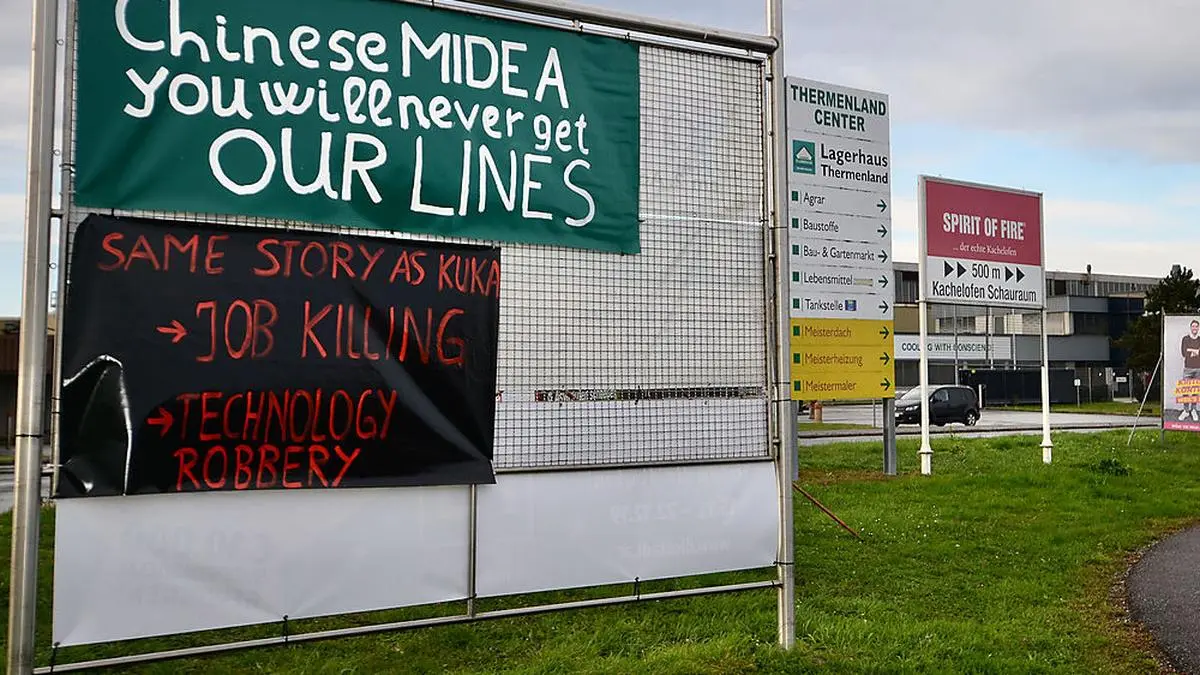 Chinese MIDEA
you will never get
OUR LINES
SAME STORY AS KUKA
→ JOB KILLING
→ TECHNOLOGY
ROBBERY
THERMENLAND
CENTER
Lagerhaus
Thermenland
Agrar
Baustoffe
Bau- & Gartenmarkt
Lebensmittel
Tankstelle
Meisterdach
Meisterheizung
Meistermaler
SPIRIT OF FIRE
... der echte Kachelofen
500 m
Kachelofen Schauraum
COOLING WITH CONSCIENCE